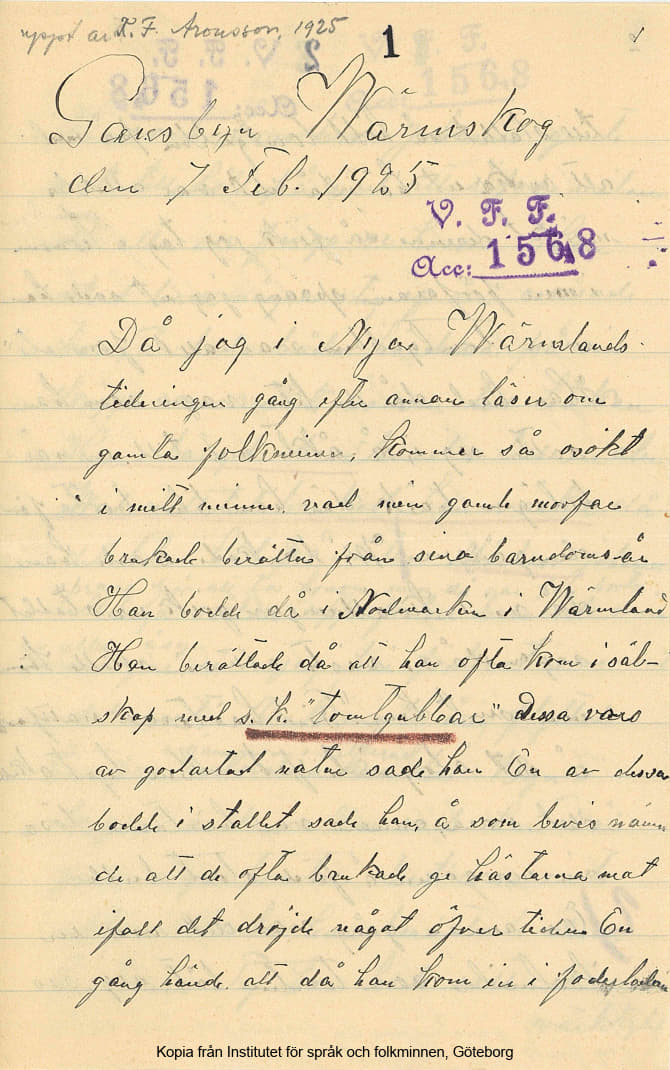 T. F. Aronsson, 1925
1
Wärmskog
den 7 Feb. 1925
V. F. F.
Acc: 1568
Då jag i Nya Wärmlands-
tidningen gång efter annan läser om
gamla folkminnen, kommer så osökt
i mitt minne, vad min gamle morfar
brukade berätta från sina barndoms-år
Han bodde då i Nordmarken i Wärmland
Han berättade då att han ofta kom i säl-
skap med s. k. "tomtgubbar" Dessa voro
av godartad natur sade han En av dessa
bodde i stallet sade han, å som bevis nämn
de att de ofta brukade ge hästarna mat
ifall det dröjde något öfver tiden En
gång hände att då han kom in i foderladan
Kopia från Institutet för språk och folkminnen, Göteborg